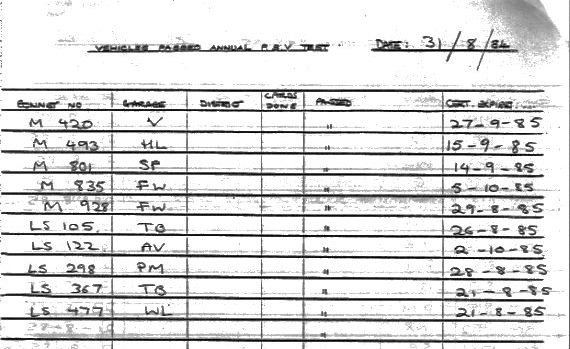 VEHICLES PASSED ANNUAL P.S.V TEST DATE: 31/8/84
BONNET NO GARAGE DISTRICT CARDS DONE PASSED CERT. EXPIRES
M 420 V " 27-9-85
M 493 HL " 15-9-85
M 801 SP " 14-9-85
M 835 FW " 5-10-85
M 928 FW " 29-8-85
LS 105 TB " 26-8-85
LS 122 AV " 2-10-85
LS 298 PM " 28-8-85
LS 367 TB " 21-8-85
LS 477 WL " 21-8-85